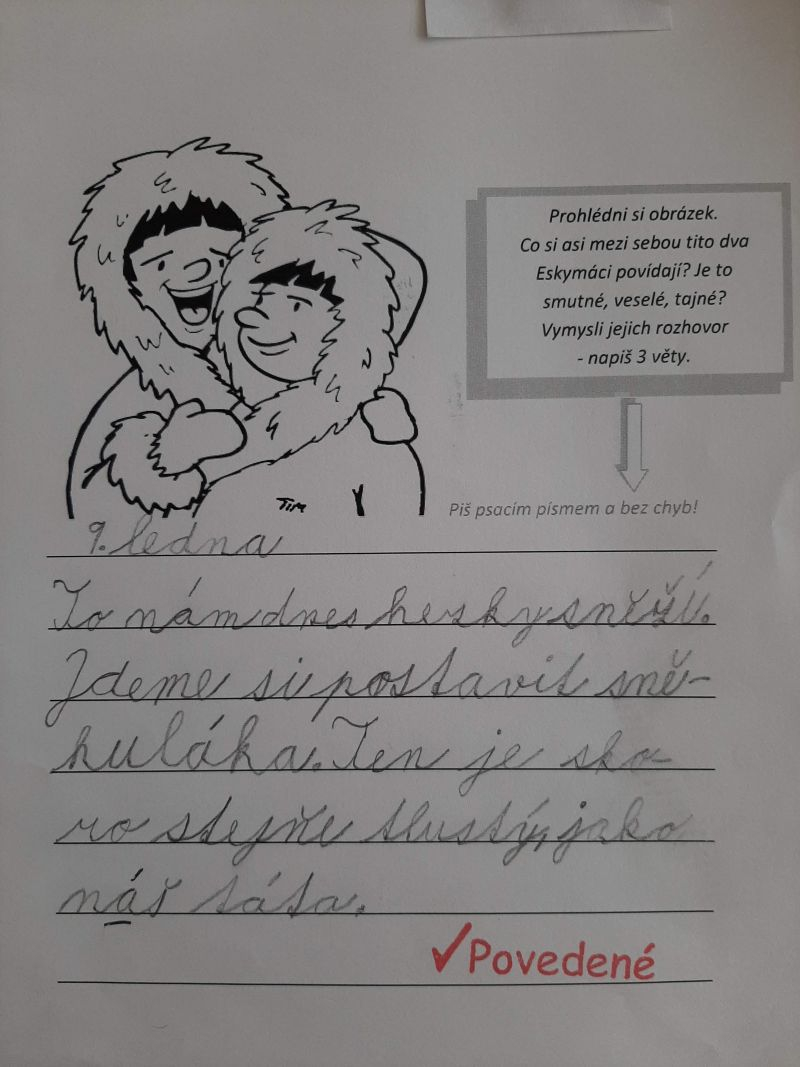 Prohlédni si obrázek.
Co si asi mezi sebou tito dva
Eskymáci povídají? Je to
smutné, veselé, tajné?
Vymysli jejich rozhovor
- napiš 3 věty.
Piš psacím písmem a bez chyb!
Tim
9. ledna
To nám dnes hesky sněží.
Jdeme si postavit sně-
huláka. Ten je sko-
ro stejňe tlustý, jako
náš táta.
✓Povedené